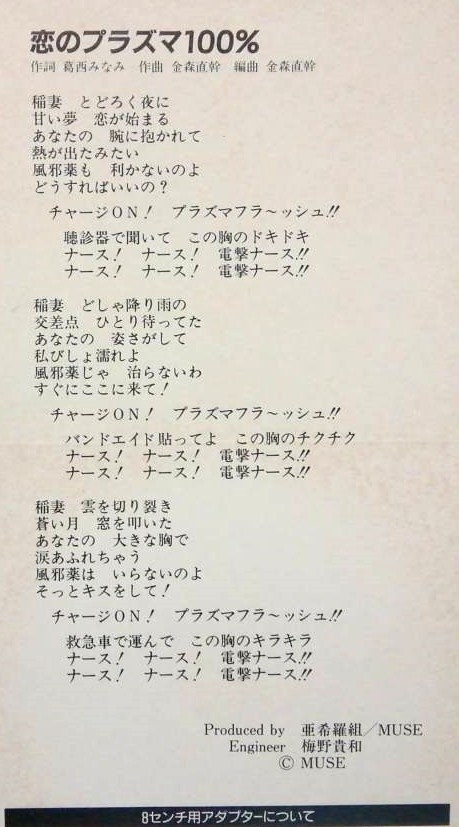 恋のプラズマ100%
作詞 葛西みなみ 作曲 金森直幹 編曲 金森直幹
稲妻 とどろく夜に
甘い夢 恋が始まる
あなたの 腕に抱かれて
熱が出たみたい
風邪薬も 利かないのよ
どうすればいいの？
チャージON！ プラズマフラ〜ッシュ!!
聴診器で聞いて この胸のドキドキ
ナース！ ナース！ 電撃ナース!!
ナース！ ナース！ 電撃ナース!!
稲妻 どしゃ降り雨の
交差点 ひとり待ってた
あなたの 姿さがして
私びしょ濡れよ
風邪薬じゃ 治らないわ
すぐにここに来て！
チャージON！ プラズマフラ〜ッシュ!!
バンドエイド貼ってよ この胸のチクチク
ナース！ ナース！ 電撃ナース!!
ナース！ ナース！ 電撃ナース!!
稲妻 雲を切り裂き
蒼い月 窓を叩いた
あなたの 大きな胸で
涙あふれちゃう
風邪薬は いらないのよ
そっとキスをして！
チャージON！ プラズマフラ〜ッシュ!!
救急車で運んで この胸のキラキラ
ナース！ ナース！ 電撃ナース!!
ナース！ ナース！ 電撃ナース!!
Produced by 亜希羅組／MUSE
Engineer 梅野貴和
Ⓒ MUSE
8センチ用アダプターについて